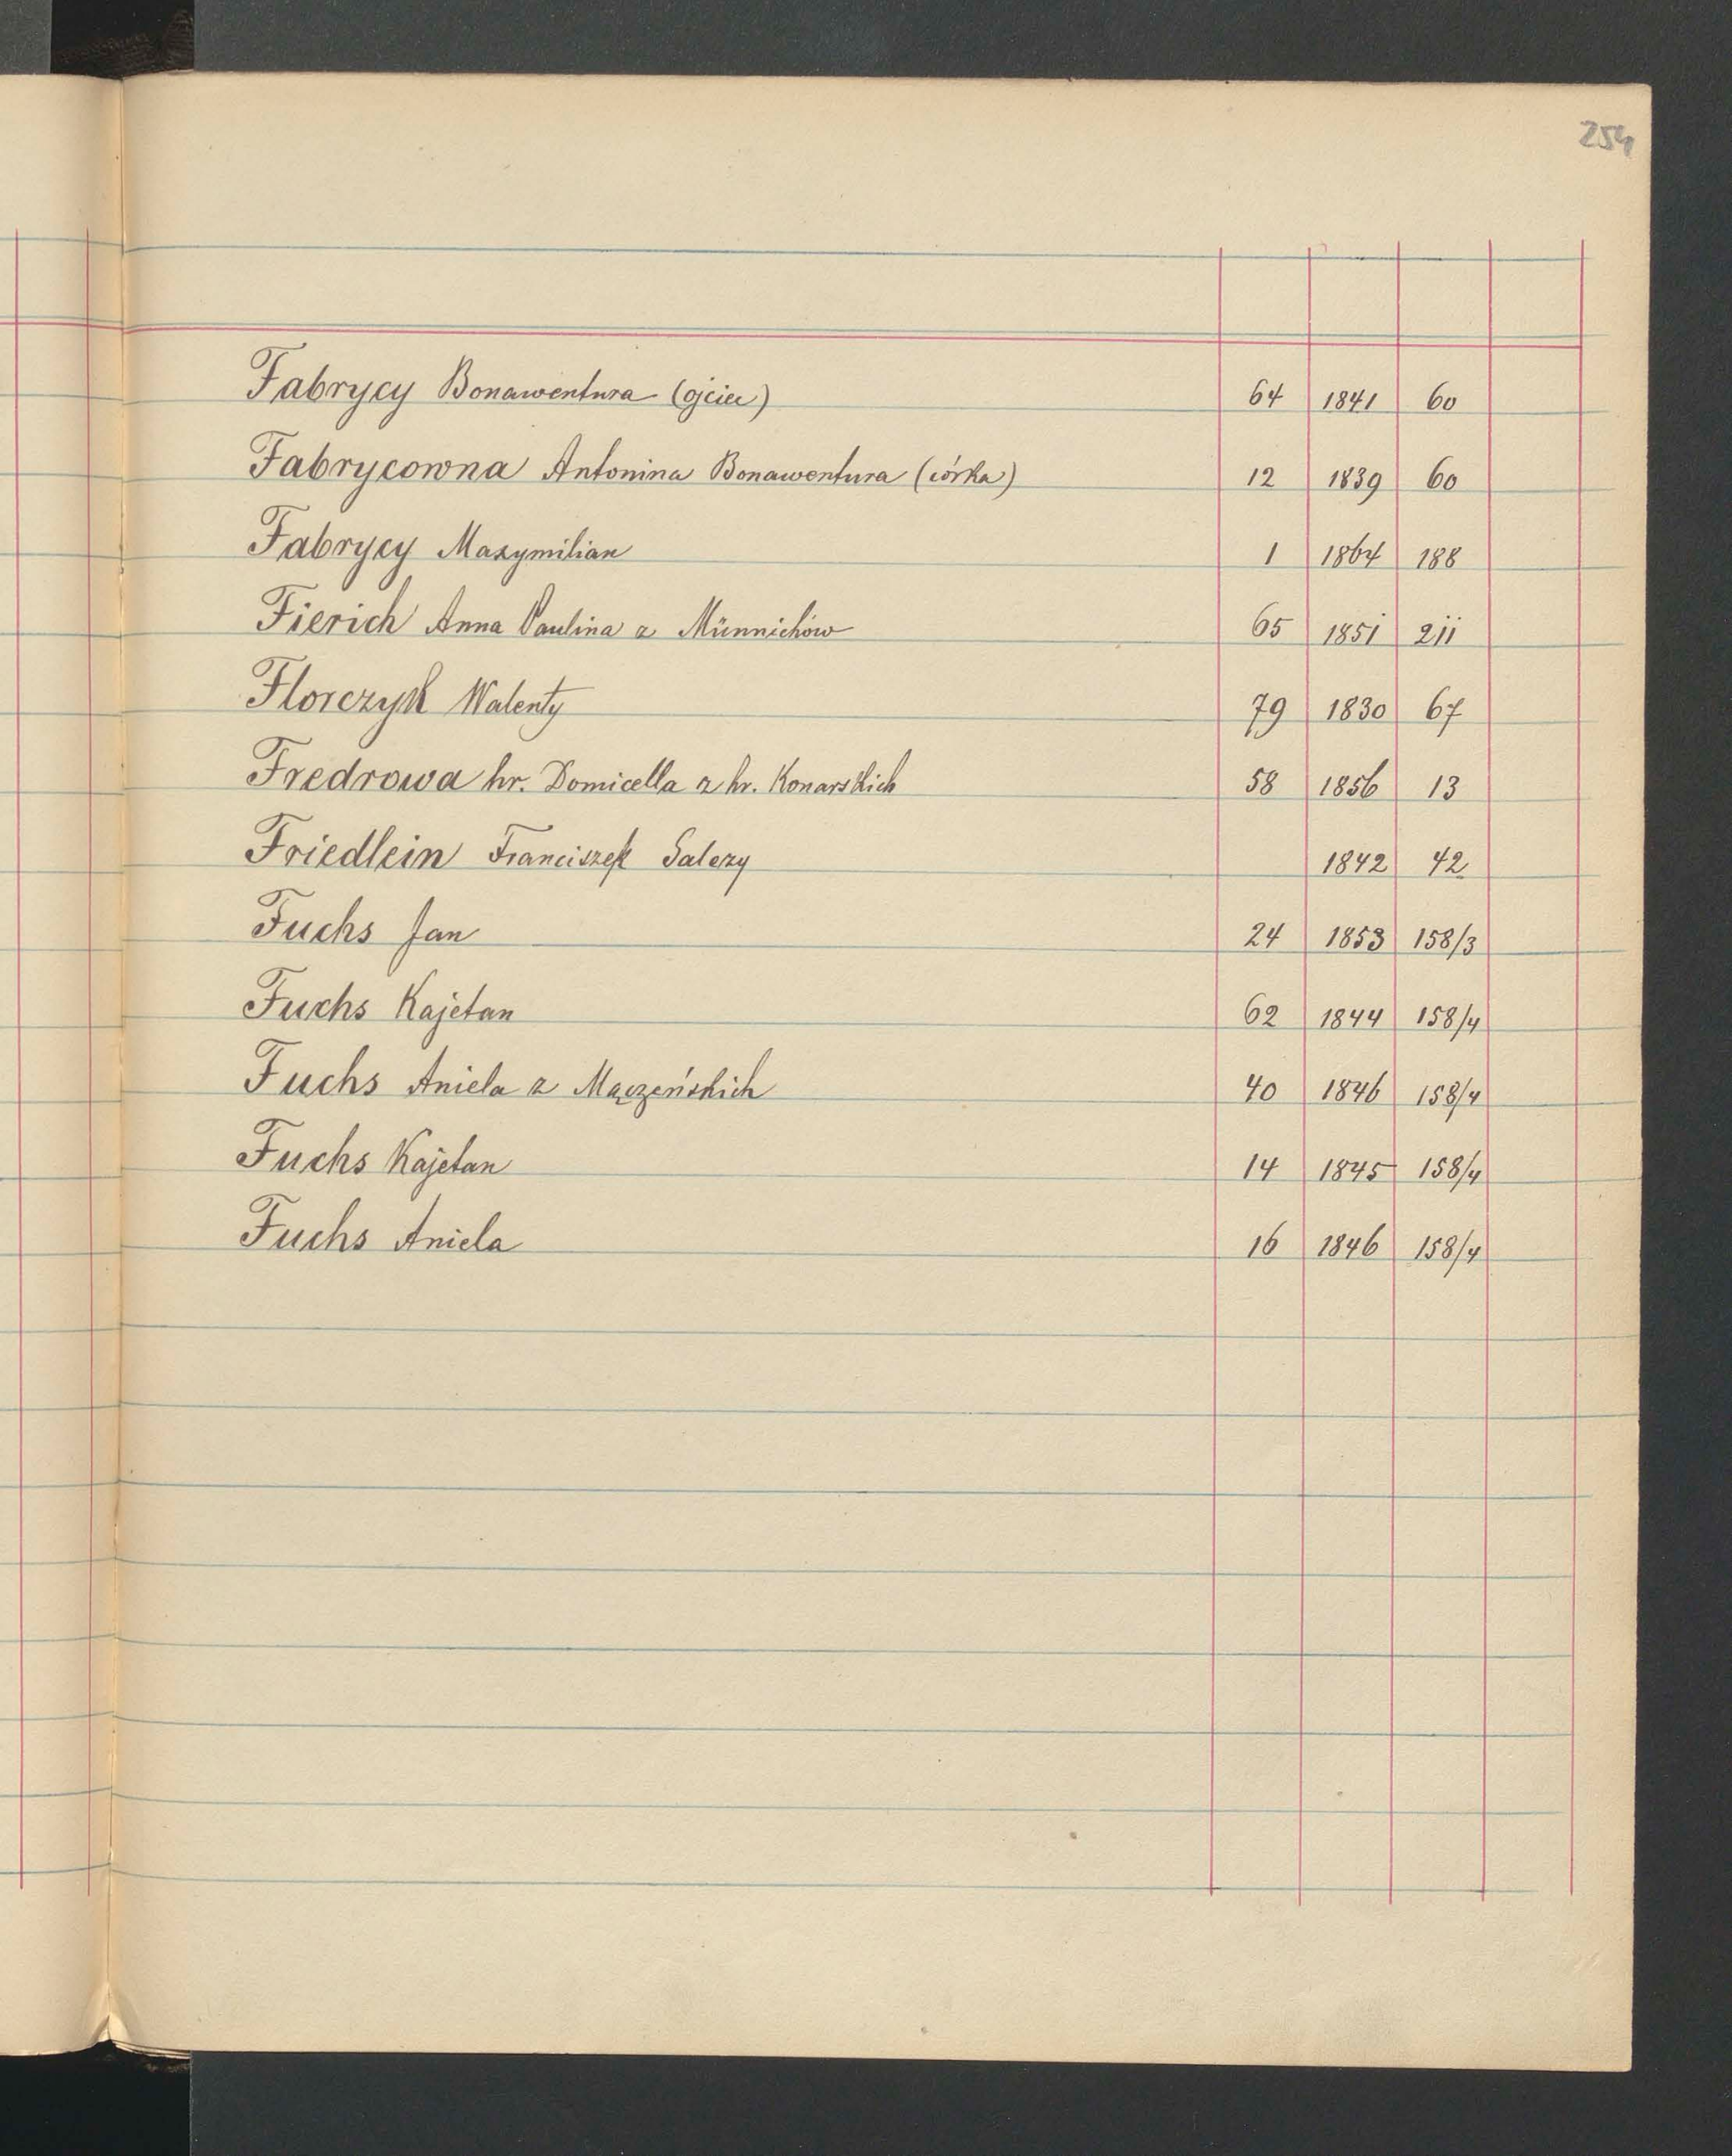 254
Fabrycy Bonawentura (ojciec) 64 1841 60
Fabrycowna Antonina Bonawentura (córka) 12 1839 60
Fabrycy Maxymilian 1 1864 188
Fierich Anna Paulina z Münnichów 65 1851 211
Florczyk Walenty 79 1830 67
Fredrowa hr. Domicella z hr. Konarskich 58 1856 13
Friedlein Franciszek Salezy 1842 42
Fuchs Jan 24 1853 158/3
Fuchs Kajetan 62 1844 158/4
Fuchs Aniela z Mączeńskich 40 1846 158/4
Fuchs Kajetan 14 1845 158/4
Fuchs Aniela 16 1846 158/4